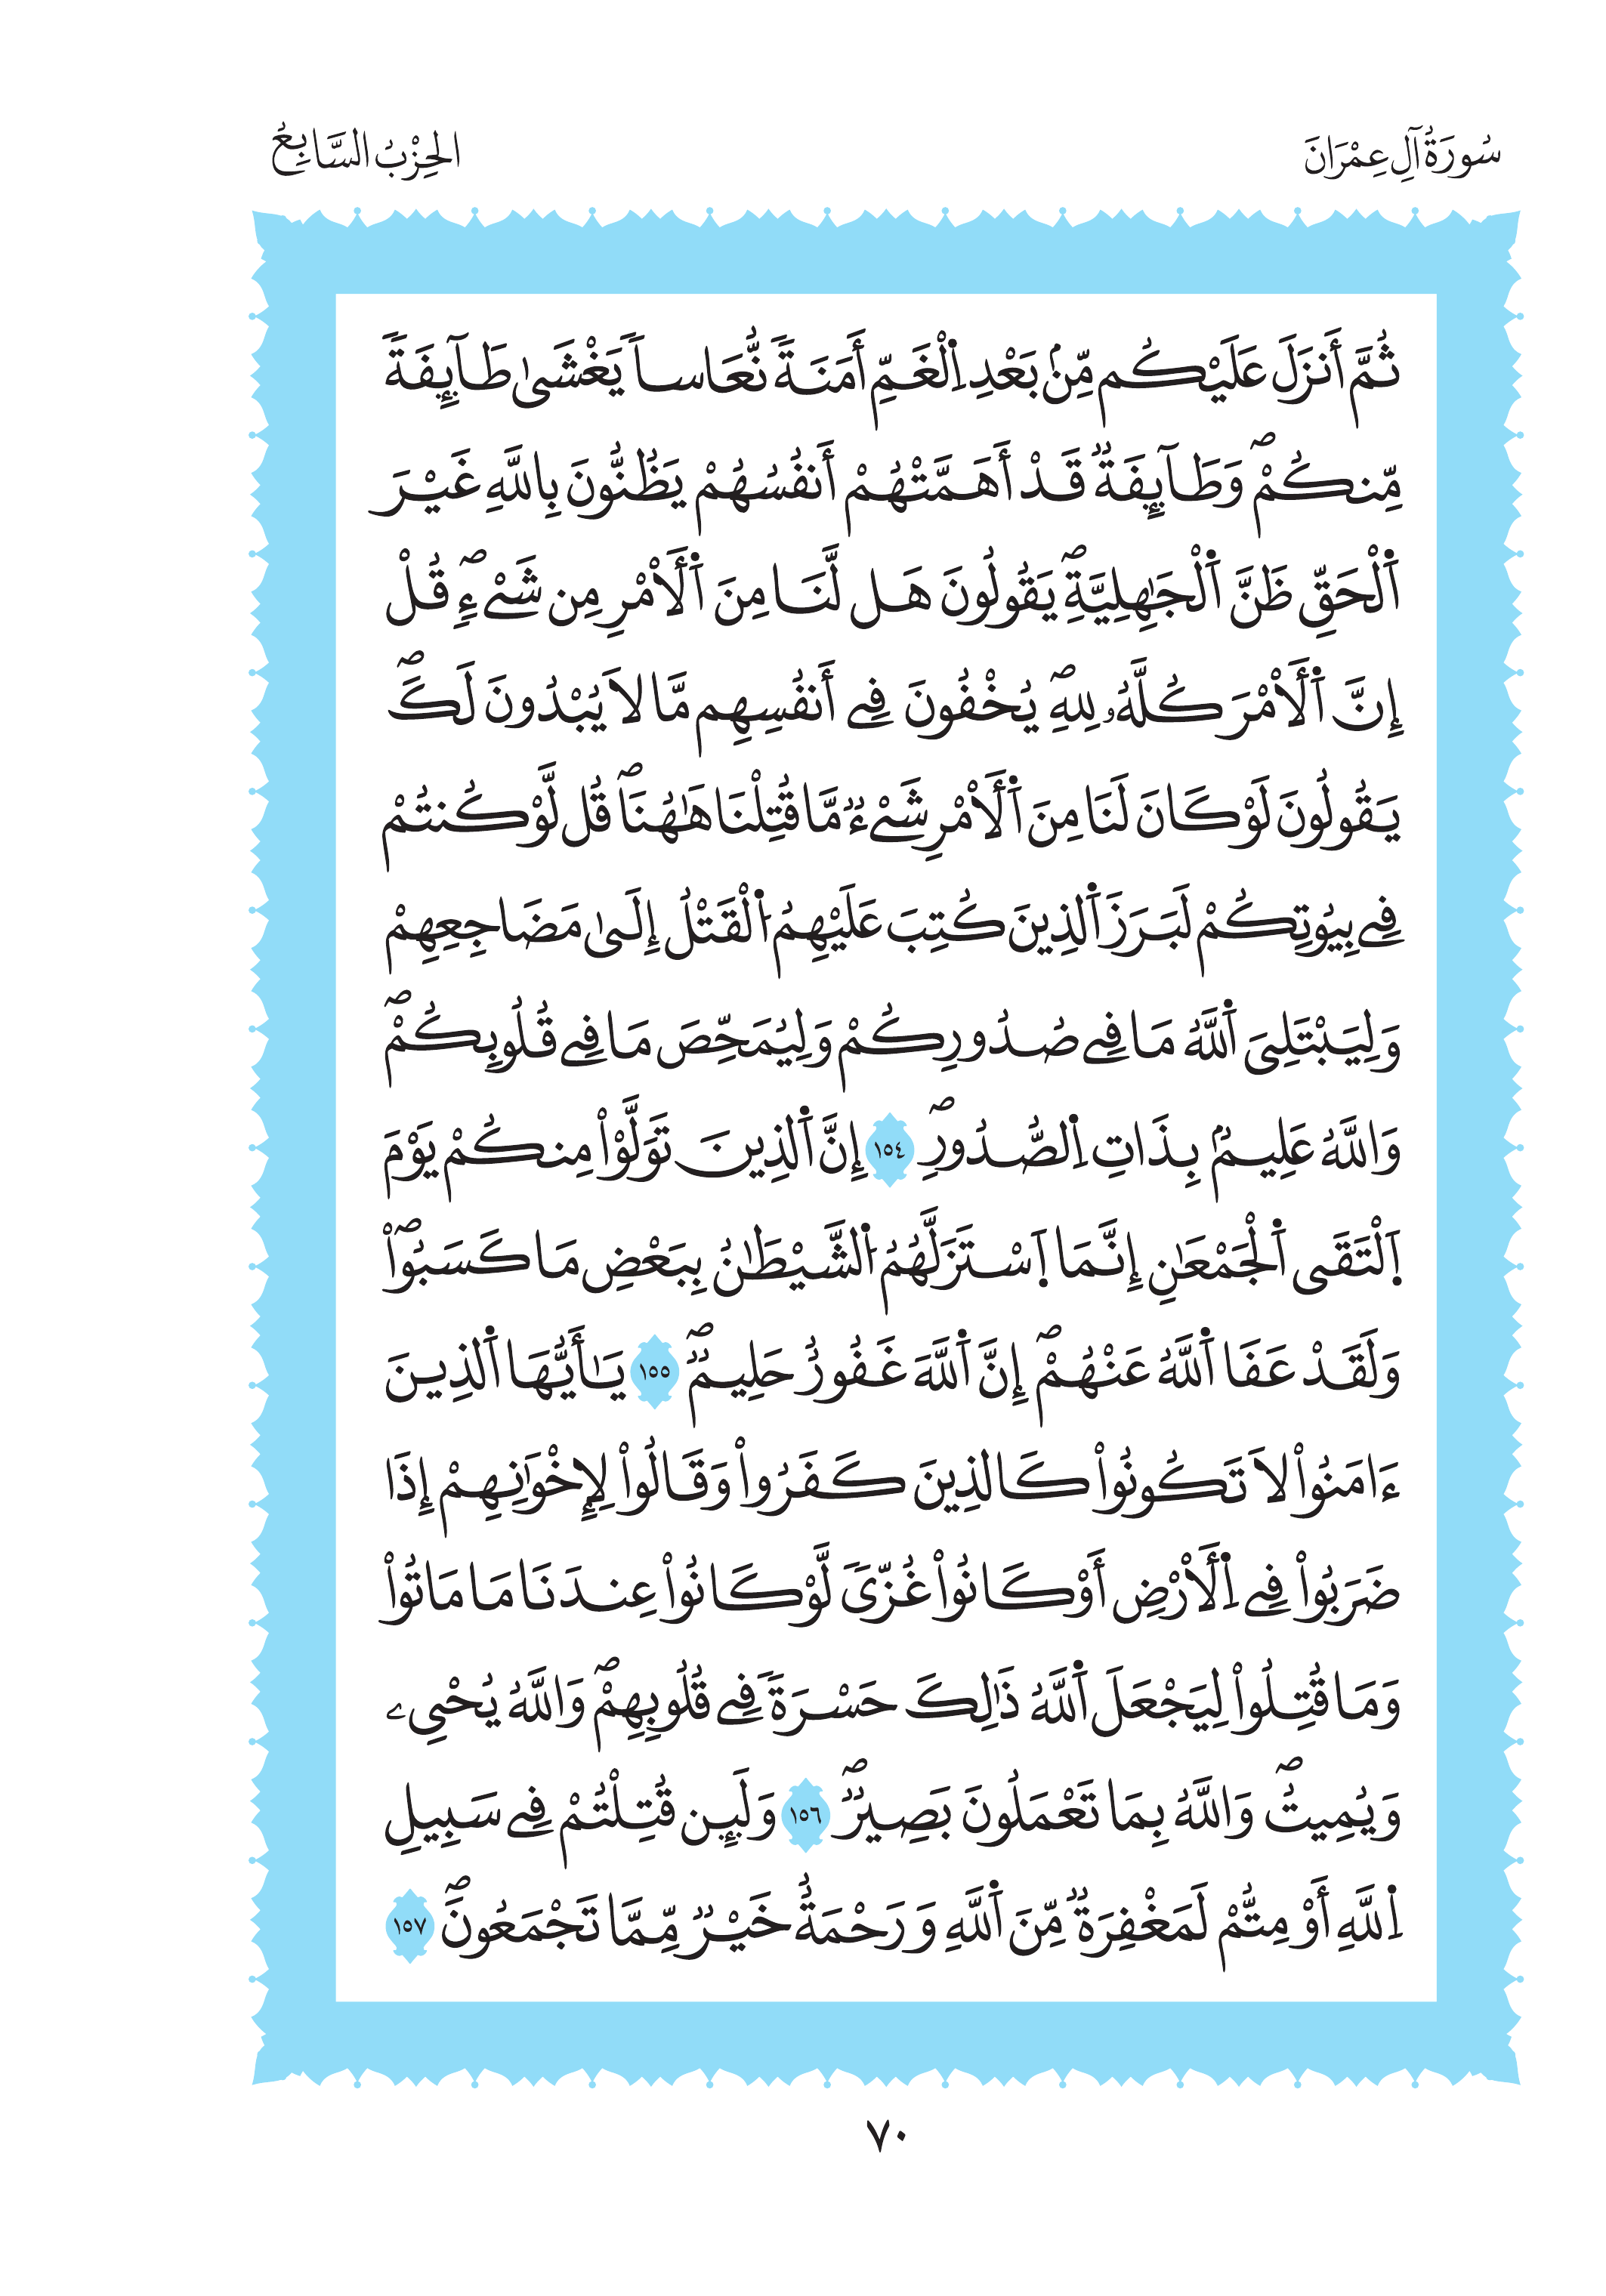 سُورَةُ آلِ عِمْرَانَ
الحِزْبُ السَّابِعُ
ثُمَّ أَنزَلَ عَلَيْكُم مِّنۢ بَعْدِ اِ۬لْغَمِّ أَمَنَةٗ نُّعَاساٗ يَغْشَىٰ طَآئِفَةٗ
مِّنكُمْۖ وَطَآئِفَةٞ قَدْ أَهَمَّتْهُمْ أَنفُسُهُمْ يَظُنُّونَ بِاللَّهِ غَيْرَ
اَ۬لْحَقِّ ظَنَّ اَ۬لْجَٰهِلِيَّةِۖ يَقُولُونَ هَل لَّنَا مِنَ اَ۬لْأَمْرِ مِن شَےْءٖۖ قُلْ
إِنَّ اَ۬لْأَمْرَ كُلَّهُۥ لِلهِۖ يُخْفُونَ فِے أَنفُسِهِم مَّا لَا يُبْدُونَ لَكَۖ
يَقُولُونَ لَوْ كَانَ لَنَا مِنَ اَ۬لْأَمْرِ شَےْءٞ مَّا قُتِلْنَا هَٰهُنَاۖ قُل لَّوْ كُنتُمْ
فِے بِيُوتِكُمْ لَبَرَزَ اَ۬لذِينَ كُتِبَ عَلَيْهِمُ اُ۬لْقَتْلُ إِلَىٰ مَضَاجِعِهِمْ
وَلِيَبْتَلِيَ اَ۬للَّهُ مَا فِے صُدُورِكُمْ وَلِيُمَحِّصَ مَا فِے قُلُوبِكُمْۖ
وَاللَّهُ عَلِيمُۢ بِذَاتِ اِ۬لصُّدُورِۖ ١٥٤ إِنَّ اَ۬لذِينَ تَوَلَّوْاْ مِنكُمْ يَوْمَ
اَ۪لْتَقَى اَ۬لْجَمْعَٰنِ إِنَّمَا اَ۪سْتَزَلَّهُمُ اُ۬لشَّيْطَٰنُ بِبَعْضِ مَا كَسَبُواْۖ
وَلَقَدْ عَفَا اَ۬للَّهُ عَنْهُمْۖ إِنَّ اَ۬للَّهَ غَفُورٌ حَلِيمٞۖ ١٥٥ يَٰأَيُّهَا اَ۬لذِينَ
ءَامَنُواْ لَا تَكُونُواْ كَالذِينَ كَفَرُواْ وَقَالُواْ لِإِخْوَٰنِهِمْ إِذَا
ضَرَبُواْ فِے اِ۬لْأَرْضِ أَوْ كَانُواْ غُزّىٗ لَّوْ كَانُواْ عِندَنَا مَا مَاتُواْ
وَمَا قُتِلُواْ لِيَجْعَلَ اَ۬للَّهُ ذَٰلِكَ حَسْرَةٗ فِے قُلُوبِهِمْۖ وَاللَّهُ يُحْيِۦ
وَيُمِيتُۖ وَاللَّهُ بِمَا تَعْمَلُونَ بَصِيرٞۖ ١٥٦ وَلَئِن قُتِلْتُمْ فِے سَبِيلِ
اِ۬للَّهِ أَوْ مِتُّمْ لَمَغْفِرَةٞ مِّنَ اَ۬للَّهِ وَرَحْمَةٌ خَيْرٞ مِّمَّا تَجْمَعُونَۖ ١٥٧
٧٠